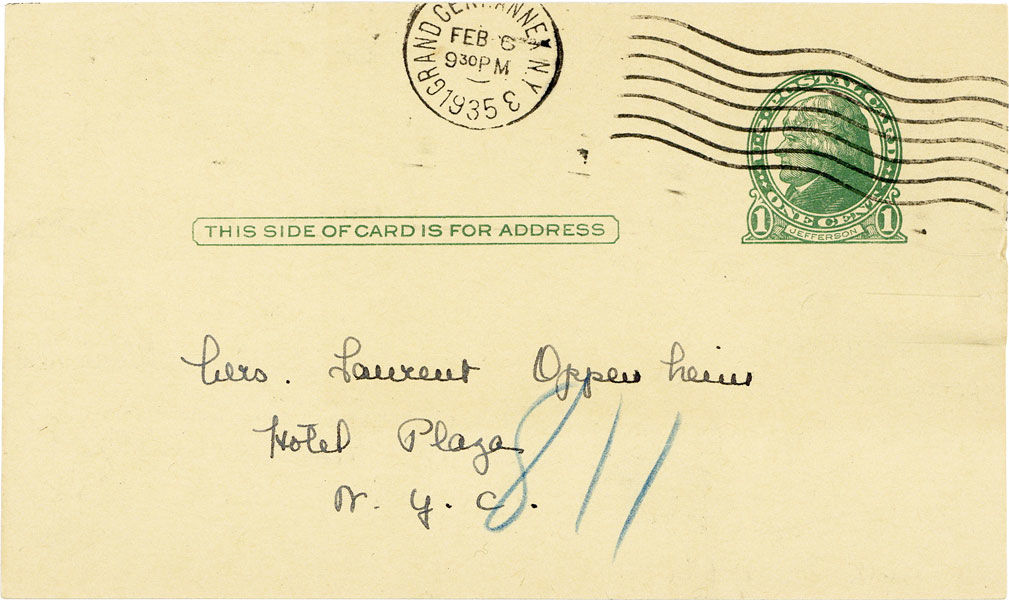 GRAND CEN. ANNEX N.Y.
FEB 6
9 30 PM
1935
U.S. POSTAL CARD
ONE CENT
1 JEFFERSON 1
THIS SIDE OF CARD IS FOR ADDRESS
Mrs. Laurent Oppenheim
Hotel Plaza
N. Y. C.
811